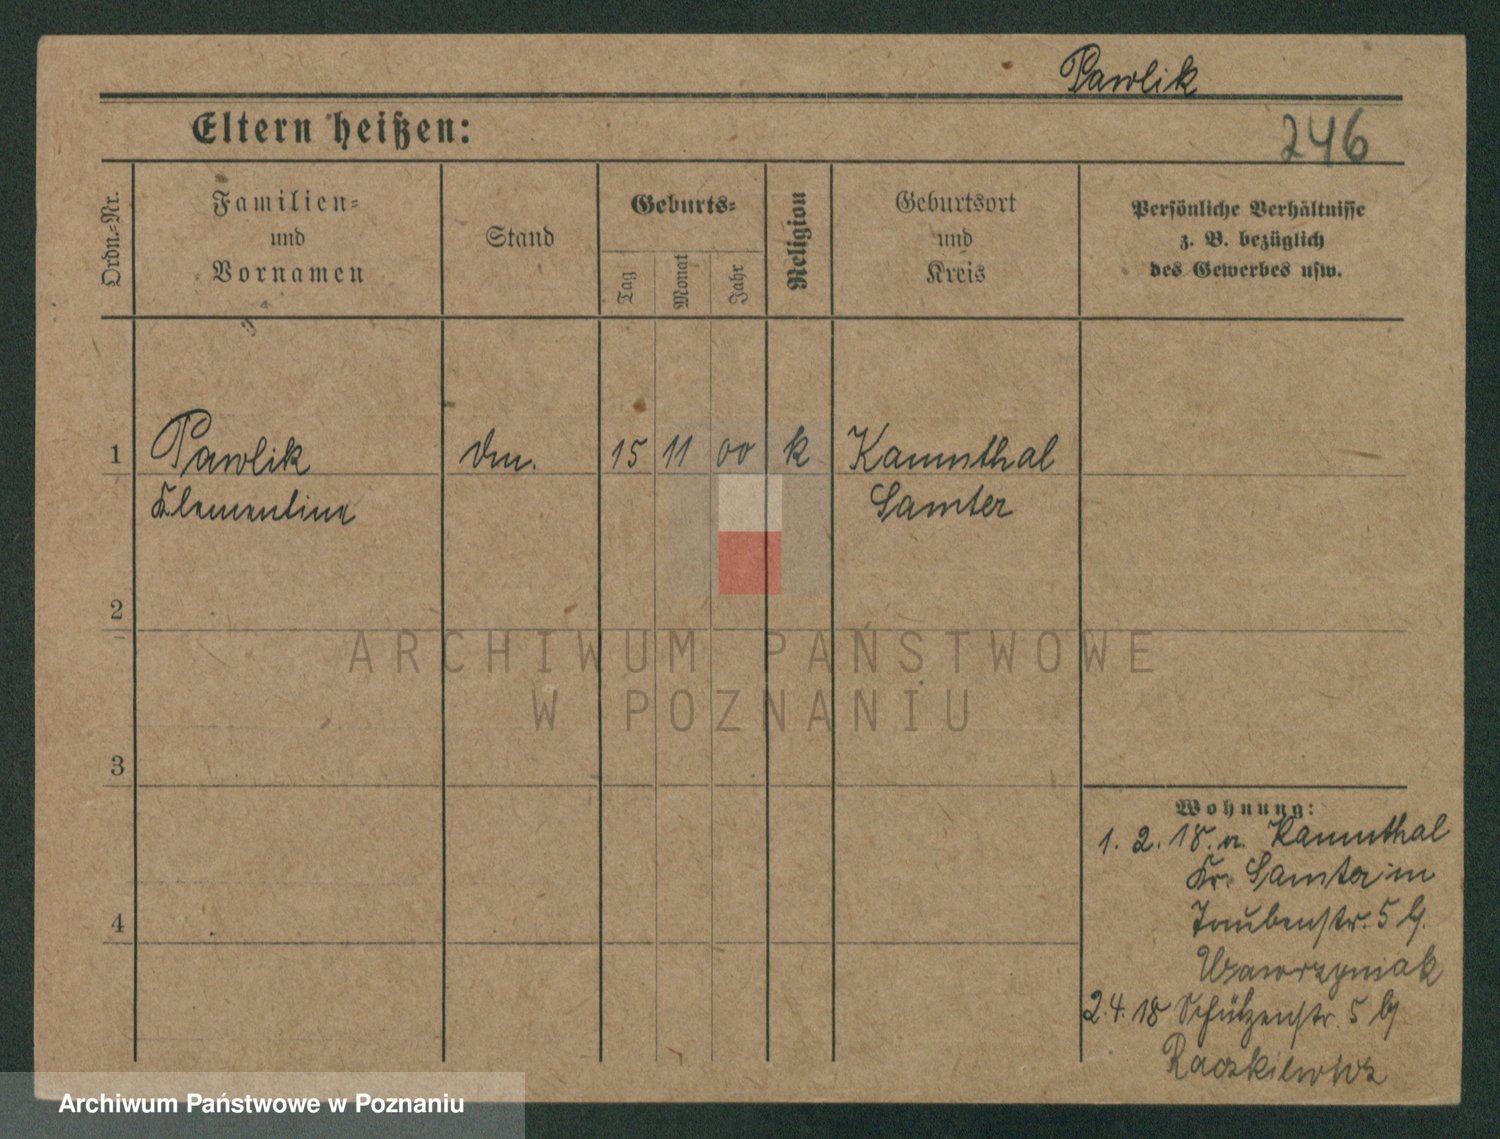 Pawlik
Eltern heißen:
246
Ordn.-Nr.
Familien-
und
Vornamen
Stand
Geburts-
Tag
Monat
Jahr
Religion
Geburtsort
und
Kreis
Persönliche Verhältnisse
z. B. bezüglich
des Gewerbes usw.
1
Pawlik 15 11 00 k Kammthal
Klementine Samter
2
ARCHIWUM PAŃSTWOWE
W POZNANIU
3
Wohnung:
1. 2. 18. a. Kammthal
Kr. Samter in
Taubenstr. 5 b.
Wawrzyniak
4
2.4.18 Schützenstr. 5 b/
Raczkiewicz
Archiwum Państwowe w Poznaniu